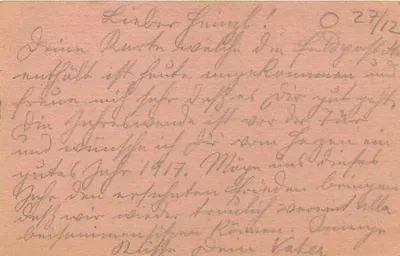 Lieber Heinzl! O 27/12
Deine Karte welche die Feldpost Nr
enthält ist heute angekommen und
freue mich sehr daß es Dir gut geht.
Die Jahreswende ist vor der Tür
und wünsche ich Dir vom Herzen ein
gutes Jahr 1917. Möge uns dieses
Jahr den ersehnten Frieden bringen
daß wir wieder traulich vereint alle
beisammensitzen können. Innige
Küsse Dein Vater